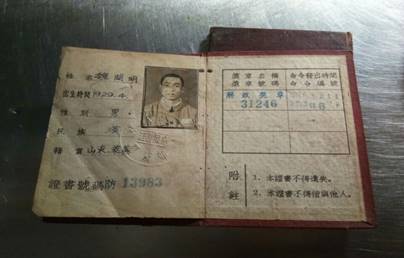 姓名 魏湖明
出生時間 1929.4
性別 男
民族 漢
籍貫 山東莱蕪
證書號碼防 13983
獎章名稱
獎章號碼
命令發出時間
命令編號
解放奬章
31246
附註
1. 本證書不得遺失。
2. 本證書不得借與他人。